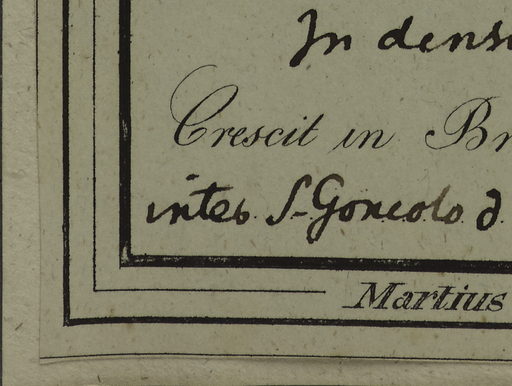 In dens
Crescit in Br
inter S. Goncolo d
Martius